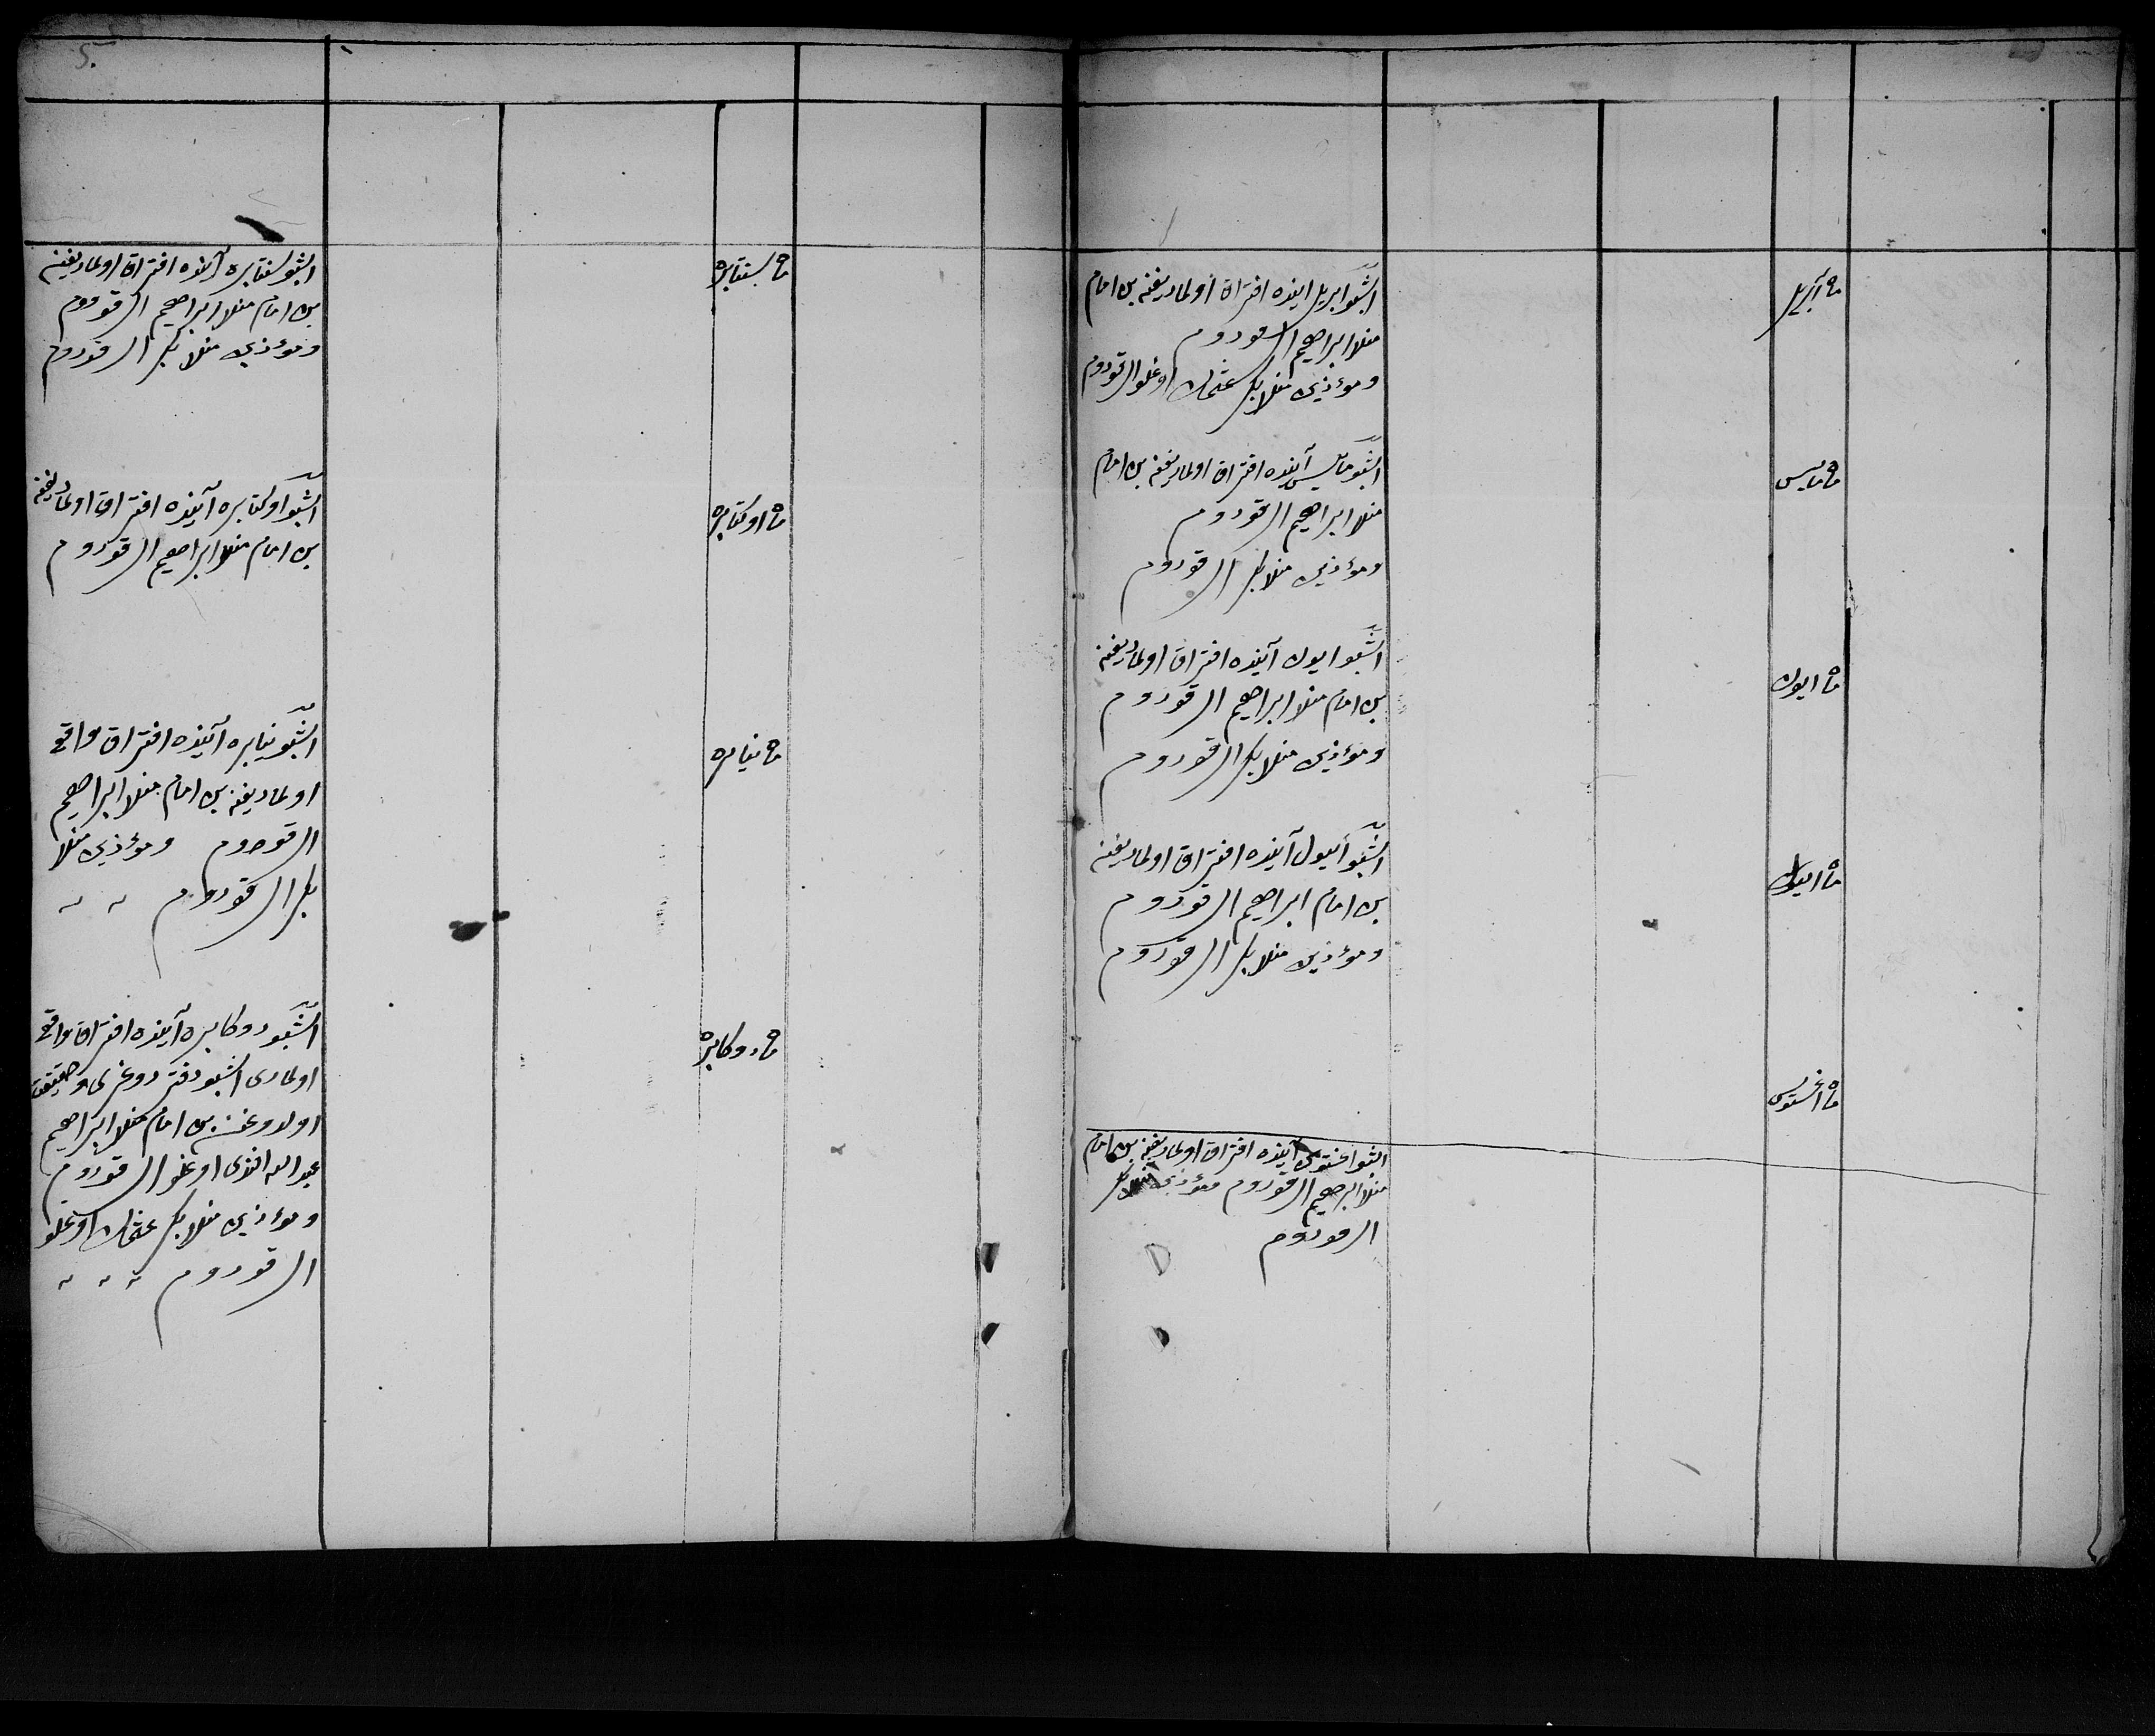 ماه آبریل
اشبو ابریل اینده افتراق اولمادیغنه بن امام
منلا ابراهیم ال قودوم
ومؤذن منلا بکر عثمان اوغلو ال قودوم
ماه مایس
اشبو مایس آینده افتراق اولمادیغنه بن امام
منلا ابراهیم ال قودوم
ومؤذن منلا بکر ال قودوم
ماه ایون
اشبو ایون آینده افتراق اولمادیغنه
بن امام منلا ابراهیم ال قودوم
ومؤذن منلا بکر ال قودوم
ماه ایول
اشبو أیول آینده افتراق اولمادیغنه
بن امام ابراهیم ال قودوم
ومؤذن منلا بکر ال قودوم
ماه اغستوس
اشبو اغستوس آینده افتراق اولمادیغنه بن امام
منلا ابراهیم ال قودوم مؤذن منلا بکر
ال قودوم
ماه سنتابره
اشبو سنتابره آینده افتراق اولمادیغینه
بن امام منلا ابراهیم ال قودوم
ومؤذن منلا بکر ال قودوم
ماه اوکتابره
اشبو اوکتابره آینده افتراق اولمادیغنه
بن امام منلا ابراهیم ال قودوم
ماه نیابره
اشبو نیابره آینده افتراق واقع
اولمادیغنه بن امام منلا ابراهیم
ال قودوم ومؤذن منلا
بکر ال قودوم
ماه دوکابره
اشبو دوکابره آینده افتراق واقع
اولمادی اشبو دفتر دوغری و حقیقت
اولدوغنه بن امام منلا ابراهیم
عبدالله افندی اوغلو ال قودوم
ومؤذن منلا بکر عثمان اوغلو
ال قودوم